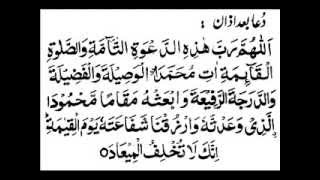 دُعا بعد اذان :
اَللّٰهُمَّ رَبَّ هٰذِهِ الدَّعْوَةِ التَّآمَّةِ وَالصَّلٰوةِ
الْقَآئِمَةِ اٰتِ مُحَمَّدَاِ الْوَسِيْلَةَ وَالْفَضِيْلَةَ
وَالدَّرَجَةَ الرَّفِيْعَةَ وَابْعَثْهُ مَقَامًا مَّحْمُوْدَا
ِالَّذِىْ وَعَدْتَّهٗ وَارْزُقْنَا شَفَاعَتَهٗ يَوْمَ الْقِيٰمَةِ
اِنَّكَ لَا تُخْلِفُ الْمِيْعَادَ٥